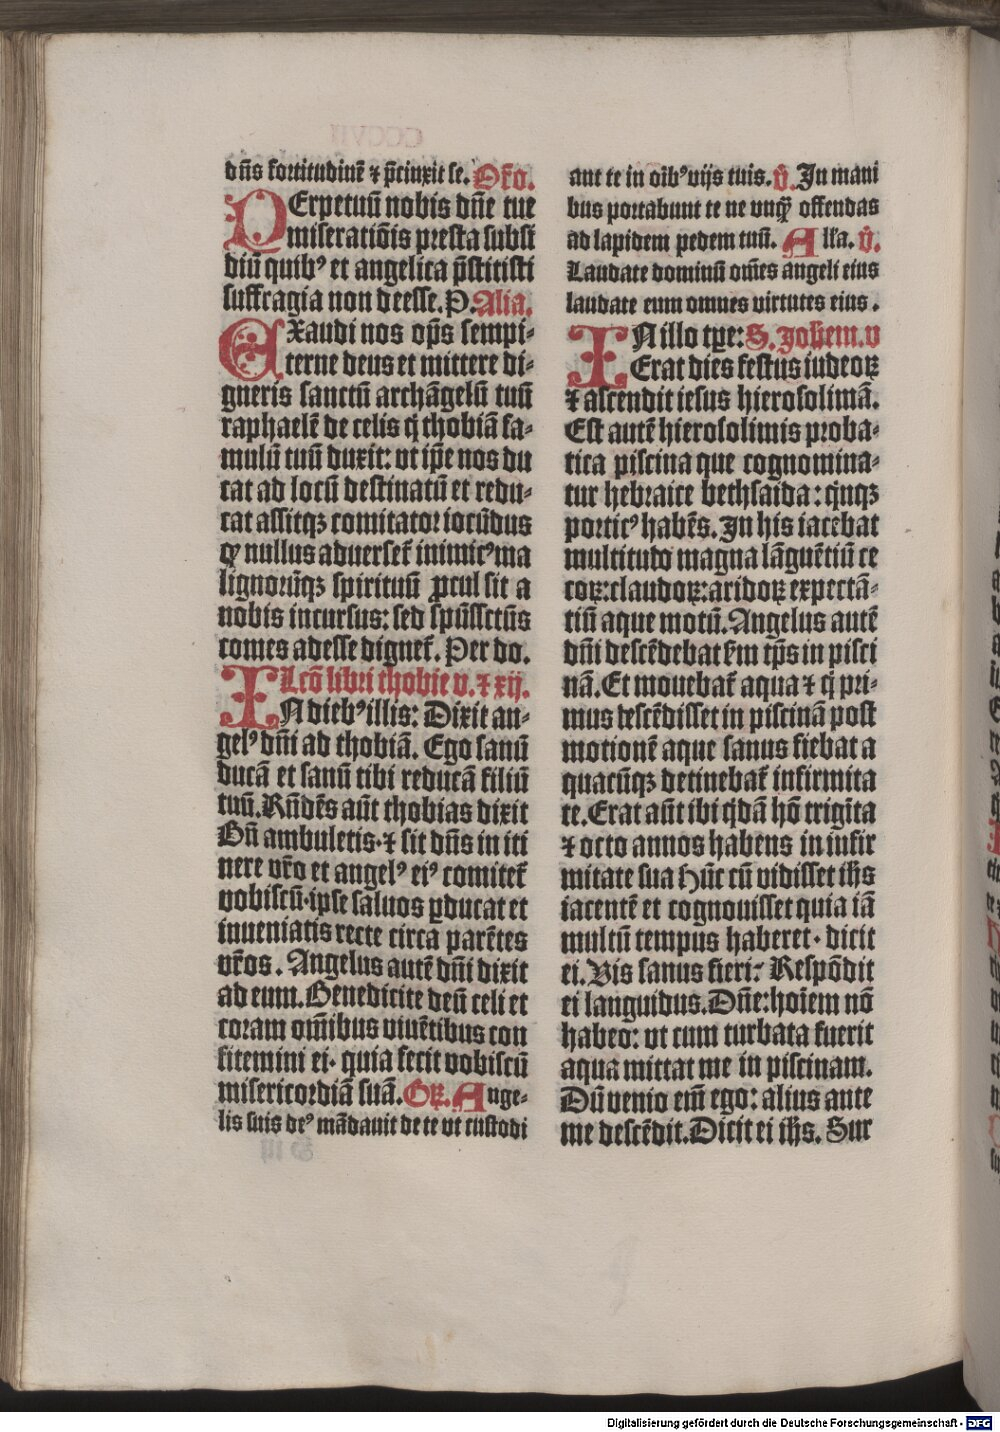 dn̄s fortitudinē ⁊ p̄cinxit se. Or̄o.
PErpetuū nobis dn̄e tue
miseratiōis presta subsi
diū quibꝰ et angelica p̄stitisti
suffragia non deesse. P. Alia.
EXaudi nos op̄s sempi-
terne deus et mittere di-
gneris sanctū archāgelū tuū
raphaelē de celis q̇ thobiā fa-
mulū tuū duxit: vt ip̄e nos du
cat ad locū destinatū et redu-
cat assitqꝫ comitator iocūdus
qͥ nullus aduerset̄ inimicꝰ ma
lignorūqꝫ spirituū ꝓcul sit a
nobis incursus: sed spūssctūs
comes adesse dignet̄. Per do.
Lcō libri thobie v. ⁊ xij.
IN diebꝰ illis: Dixit an-
gelꝰ dn̄i ad thobiā. Ego sanū
ducā et sanū tibi reducā filiū
tuū. Rn̄dēs aūt thobias dixit
Bn̄ ambuletis. ⁊ sit dn̄s in iti
nere vr̄o et angelꝰ eiꝰ comitet̄
vobiscū. ipse saluos ꝑducat et
inueniatis recte circa parētes
vr̄os. Angelus autē dn̄i dixit
ad eum. Benedicite deū celi et
coram om̄ibus viuētibus con
fitemini ei. quia fecit vobiscū
misericordiā suā. Gꝝ. Ange-
lis suis deꝰ mādauit de te vt custodi
ant te in oībꝰ vijs tuis. v̄. In mani
bus portabunt te ne vnqꝫ offendas
ad lapidem pedem tuū. All'a. v̄.
Laudate dominū om̄es angeli eius
laudate eum omnes virtutes eius.
IN illo tꝑe: S. Johem. v
Erat dies festus iudeoꝝ
⁊ ascendit iesus hierosolimā.
Est autē hierosolimis proba-
tica piscina que cognomina-
tur hebraice bethsaida: q̇nqꝫ
porticꝰ habēs. In his iacebat
multitudo magna lāguētiū ce
coꝝ: claudoꝝ: aridoꝝ expectā-
tiū aque motū. Angelus autē
dn̄i descēdebat sm̄ tp̄s in pisci
nā. Et mouebat̄ aqua ⁊ q̇ pri-
mus descēdisset in piscinā post
motionē aque sanus fiebat a
quacūqꝫ detinebat̄ infirmita
te. Erat aūt ibi q̇dā hō trigīta
⁊ octo annos habens in infir
mitate sua Hūc cū vidisset ih̄s
iacentē et cognouisset quia iā
multū tempus haberet. dicit
ei. Vis sanus fieri? Respōdit
ei languidus. Dn̄e: hoīem nō
habeo: vt cum turbata fuerit
aqua mittat me in piscinam.
Dū venio em̄ ego: alius ante
me descēdit. Dicit ei ih̄s. Sur
Digitalisierung gefördert durch die Deutsche Forschungsgemeinschaft - DFG